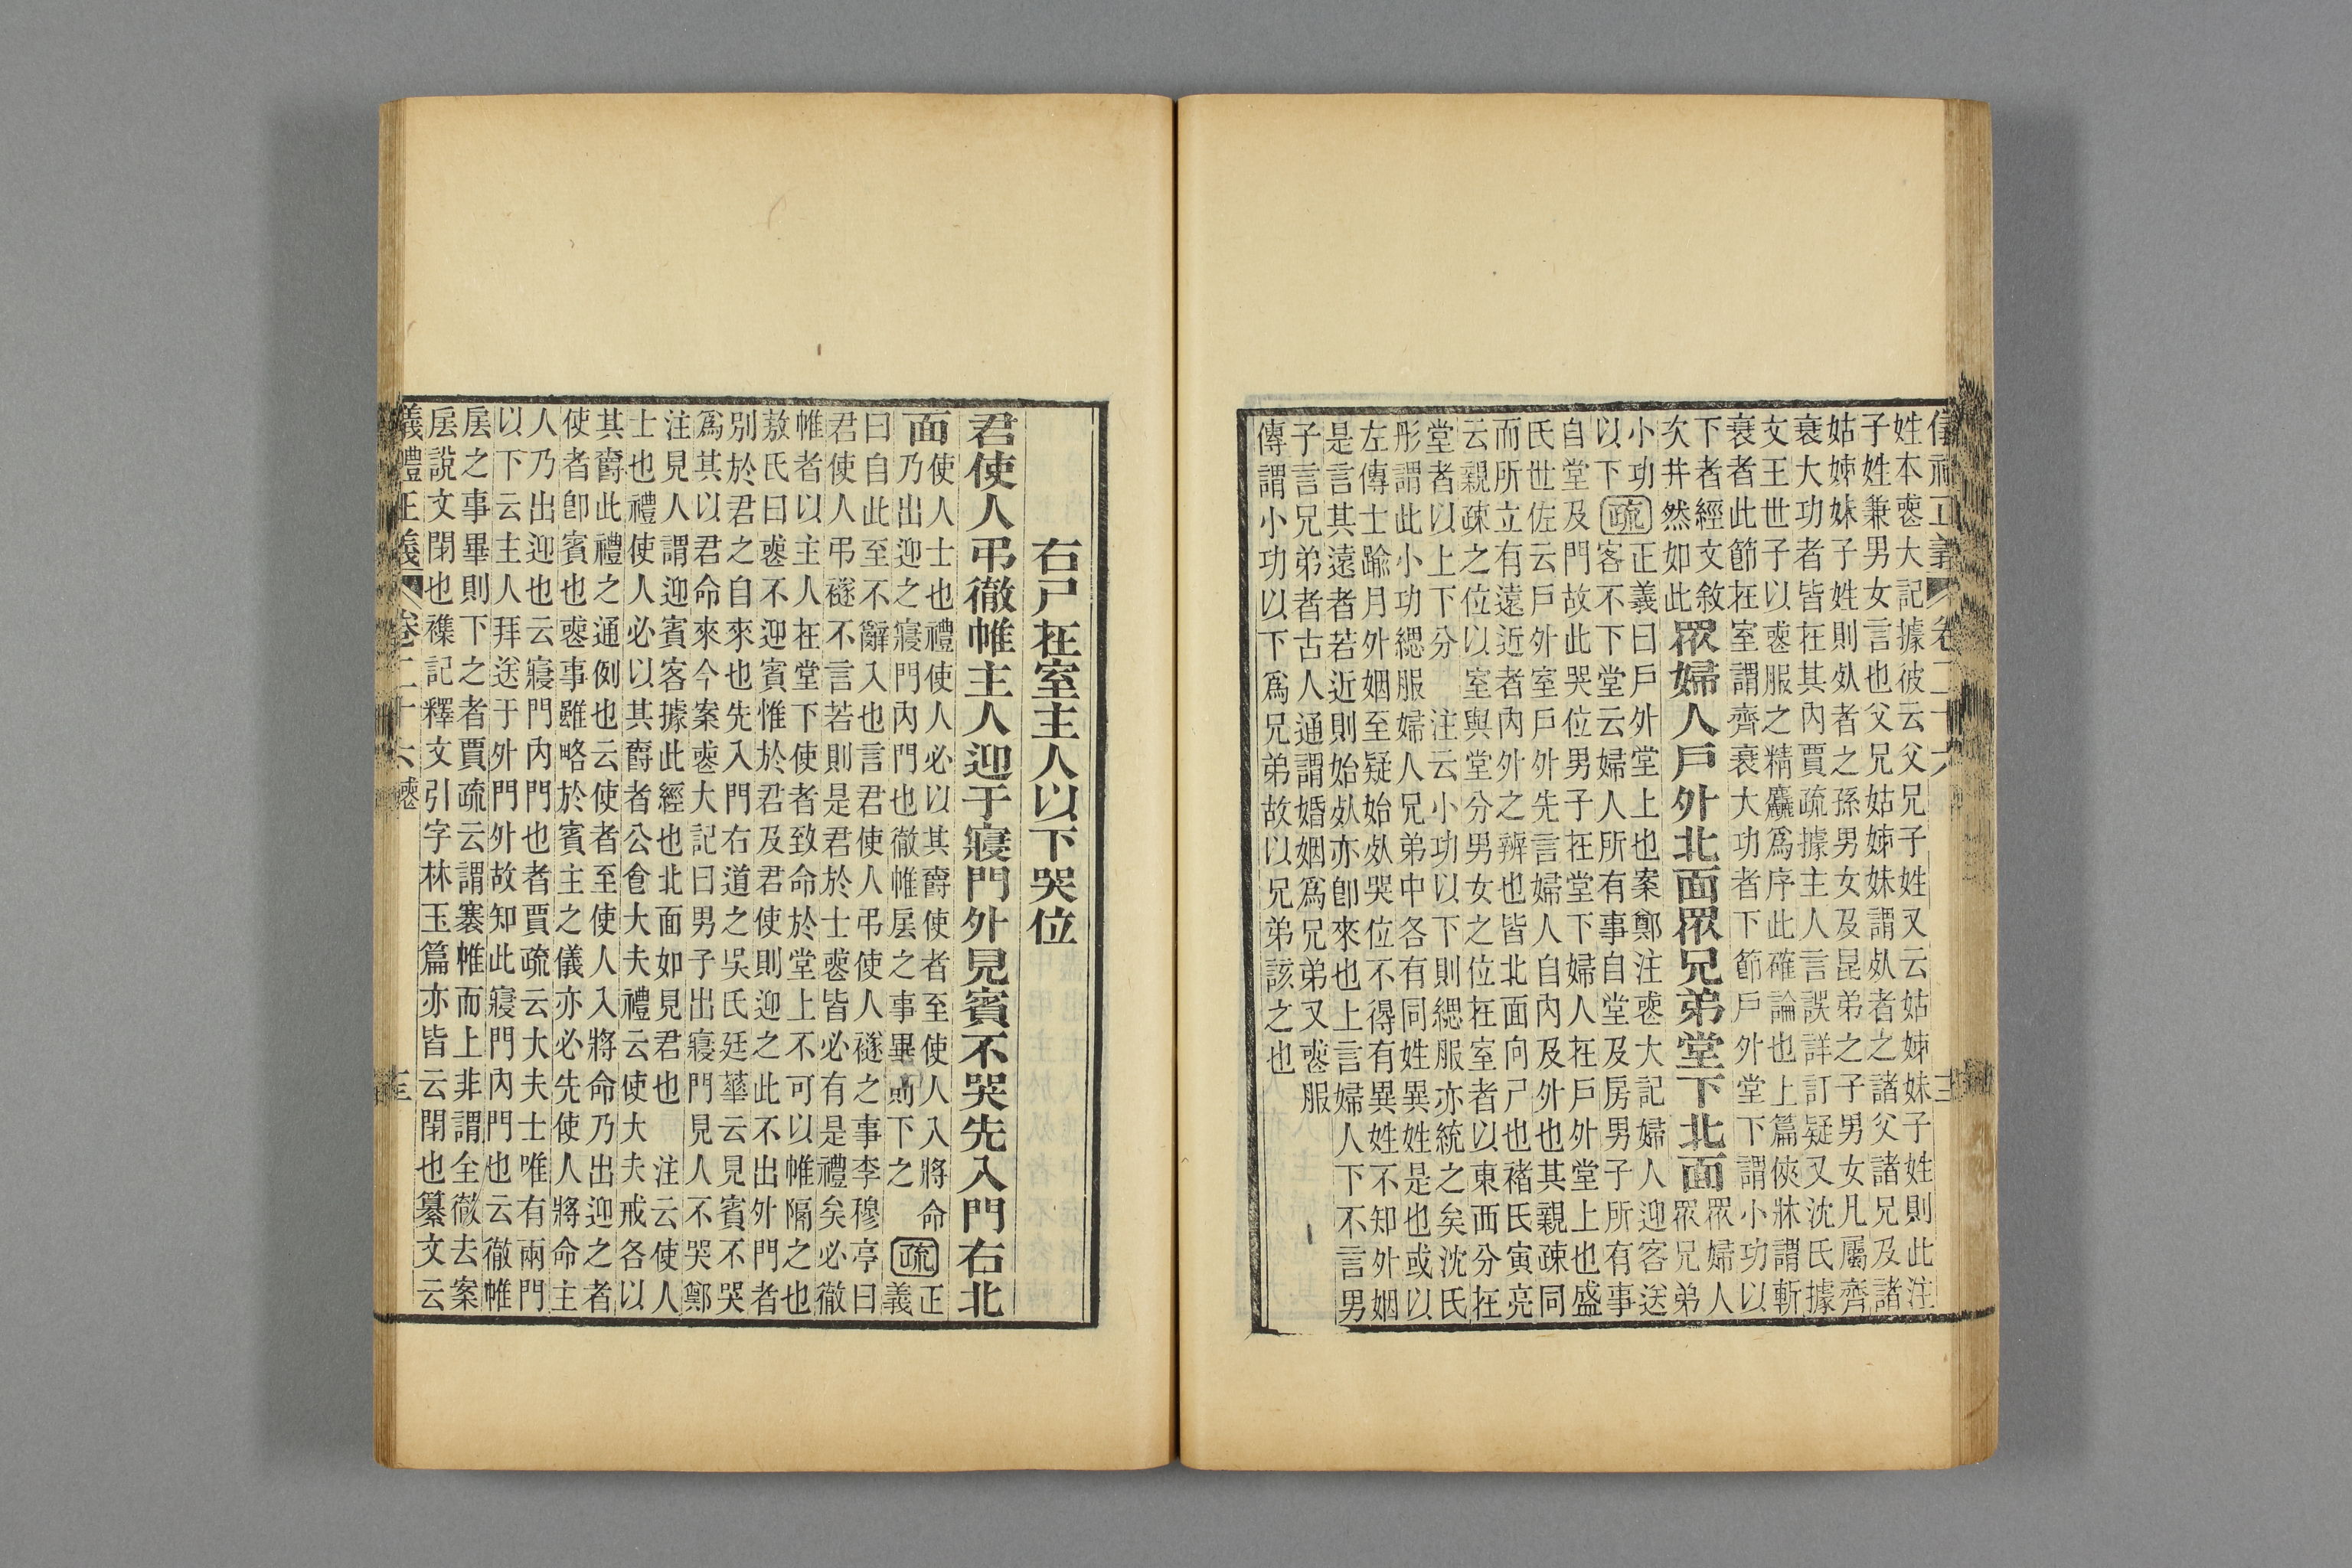 儀禮正義 卷二十六 三
姓本喪大記據彼云父兄子姓又云姑姊妹子姓則此注
子姓兼男女言也父兄姑姊妹謂死者之諸父諸兄及諸
姑姊妹子姓則死者之孫男女及昆弟之子男女凡屬齊
衰大功者皆在其內賈疏據主人言誤詳訂疑又沈氏據
文王世子以喪服之精麤爲序此確論也上篇俠牀謂斬
衰者此節在室謂齊衰大功者下節戶外堂下謂小功以
下者經文敘
次井然如此
眾婦人戶外北面眾兄弟堂下北面
眾婦人
眾兄弟
小功
以下
疏
正義曰戶外堂上也案鄭注喪大記婦人迎客送
客不下堂云婦人所有事自堂及房男子所有事
自堂及門故此哭位男子在堂下婦人在戶外堂上也盛
氏世佐云戶外室戶外先言婦人自內及外也其親疎同
而所立有遠近者內外之辨也皆北面向尸也褚氏寅亮
云親疎之位以室與堂分男女之位在室者以東西分在
堂者以上下分 注云小功以下則緦服亦統之矣沈氏
彤謂此小功緦服婦人兄弟中各有同姓異姓是也或以
左傳士踰月外姻至疑始死哭位不得有異姓不知外姻
是言其遠者若近則始死亦卽來也上言婦人下不言男
子言兄弟者古人通謂婚姻爲兄弟又喪服
傳謂小功以下爲兄弟故以兄弟該之也
右尸在室主人以下哭位
君使人弔徹帷主人迎于寢門外見賓不哭先入門右北
面
使人士也禮使人必以其爵使者至使人入將命
乃出迎之寢門內門也徹帷㕎之事畢則下之
疏
正
義
曰自此至不辭入也言君使人弔使人襚之事李穆亭曰
君使人弔襚不言若則是君於士喪皆必有是禮矣必徹
帷者以主人在堂下使者致命於堂上不可以帷隔之也
敖氏曰喪不迎賓惟於君及君使則迎之此不出外門者
別於君之自來也先入門右道之吳氏廷華云見賓不哭
爲其以君命來今案喪大記曰男子出寢門見人不哭鄭
注見人謂迎賓客據此經也北面如見君也 注云使人
士也禮使人必以其爵者公食大夫禮云使大夫戒各以
其爵此禮之通例也云使者至使人入將命乃出迎之者
使者卽賓也喪事雖略於賓主之儀亦必先使人將命主
人乃出迎也云寢門內門也者賈疏云大夫士唯有兩門
以下云主人拜送于外門外故知此寢門內門也云徹帷
㕎之事畢則下之者賈疏云謂褰帷而上非謂全徹去案
㕎說文閉也襍記釋文引字林玉篇亦皆云閉也纂文云
儀禮正義 卷二十六喪 三